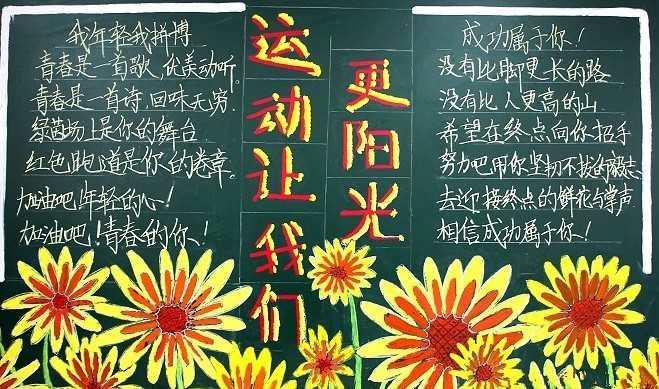 我年轻我拼博
青春是一首歌,优美动听。
青春是一首诗,回味无穷.
绿茵场上是你的舞台
红色跑道是你的卷章。
加油吧!年轻的心!
加油吧!!青春的你!
运动让我们
更阳光
成功属于你!
没有比脚更长的路
没有比人更高的山
希望在终点向你招手
努力吧用你坚韧不拔的毅志
去迎接终点的鲜花与掌声
相信成功属于你!